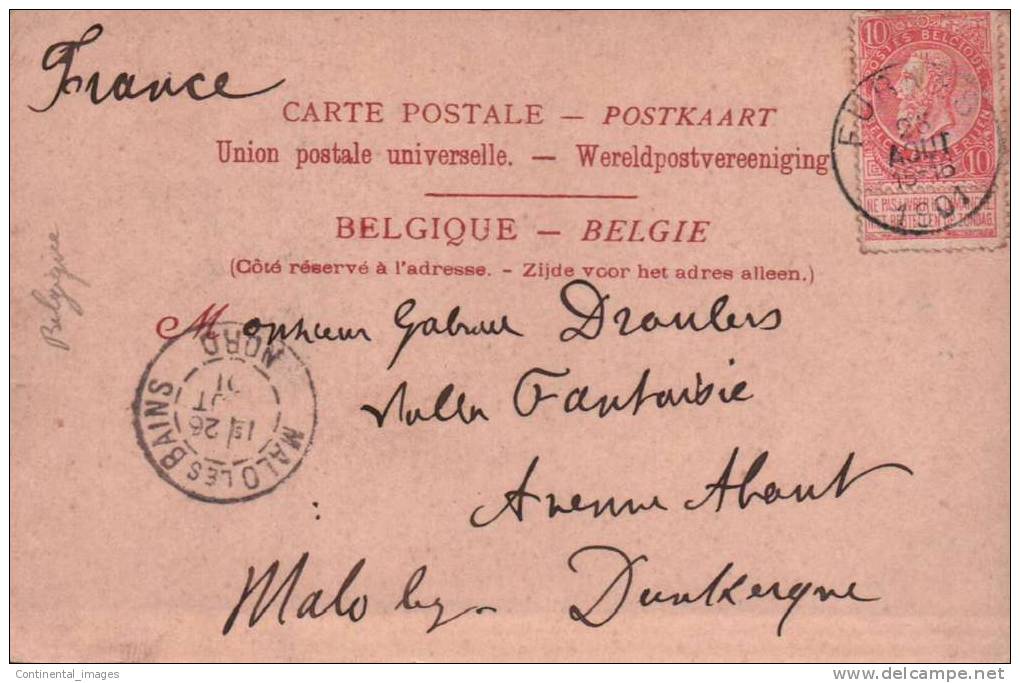 France
CARTE POSTALE — POSTKAART
Union postale universelle. — Wereldpostvereeniging
BELGIQUE — BELGIE
(Côté réservé à l'adresse. - Zijde voor het adres alleen.)
10 POSTES BELGIQUE
10
NE PAS LIVRER LE DIMANCHE
NIET BESTELLEN OP ZONDAG
FURNES
AOUT
1901
Belgique
Monsieur Gabriel Droulers
Villa Fantaisie
Avenue
Malo les Dunkerque
MALO LES BAINS
NORD
1E 26
01
Continental_images
www.delcampe.net